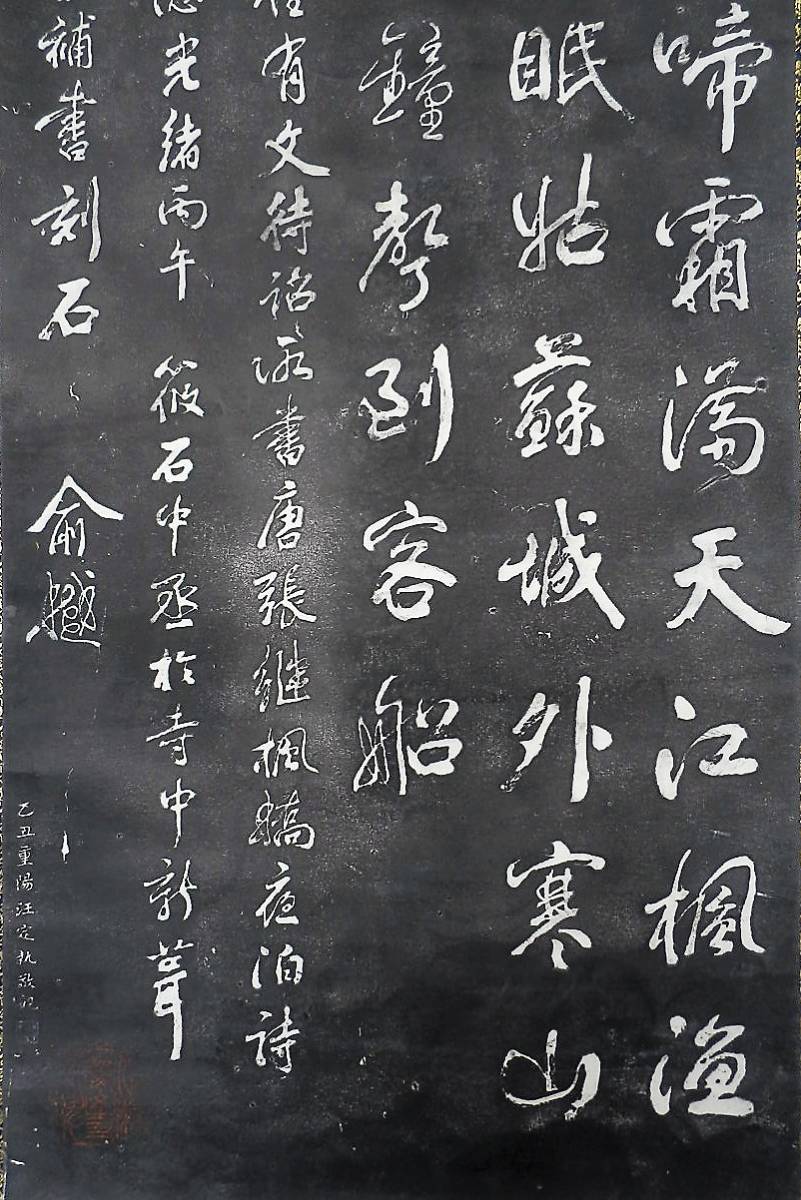 啼霜滿天江楓漁
眠姑蘇城外寒山
鐘聲到客船
有文待詔所書唐張繼楓橋夜泊詩
光緒丙午筱石中丞於寺中新葺
補書刻石俞樾
乙丑重陽汪定執敬